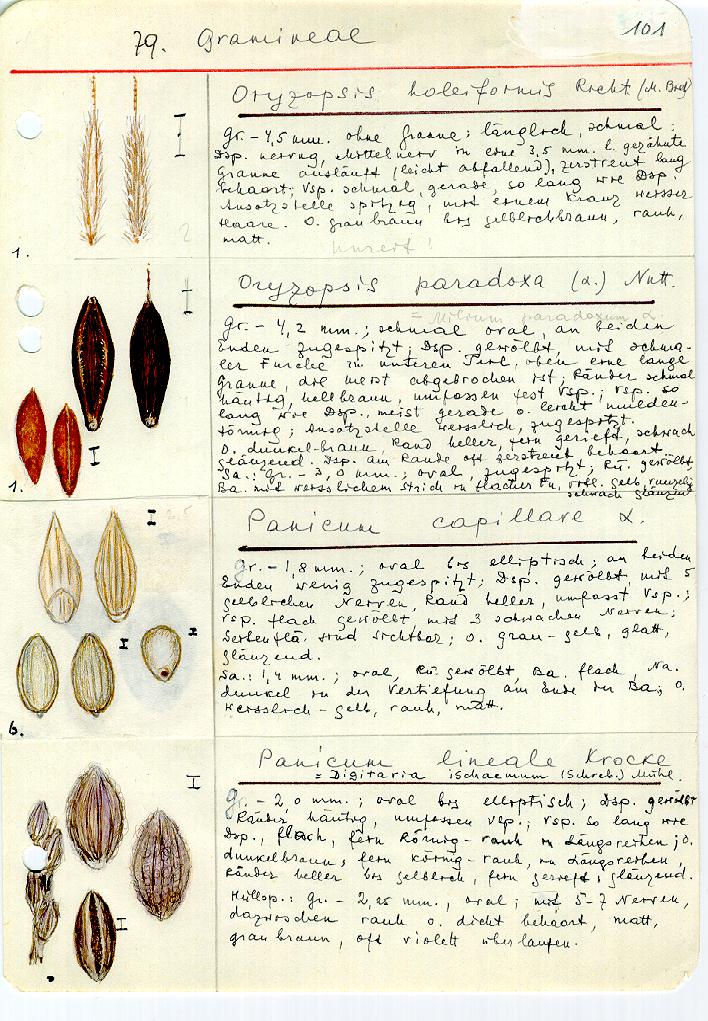 79. Gramineae
101
Oryzopsis holciformis Richt (M. Bieb)
Gr. - 4,5 mm. ohne Granne; länglich, schmal;
Dsp. nervig, Mittelnerv in eine 3,5 mm. l. gezähnte
Granne ausläuft (leicht abfallend), zerstreut lang
behaart; Vsp. schmal, gerade, so lang wie Dsp.
Ansatzstelle spitzig, mit einem Kranz weisser
Haare. O. graubraun bis gelblichbraun, rauh,
matt.
unreif!
1.
Oryzopsis paradoxa (L.) Nutt.
= Milium paradoxum L.
Gr. - 4,2 mm.; schmal oval, an beiden
Enden zugespitzt; Dsp. gewölbt mit schma-
ler Furche im unteren Teil, oben eine lange
Granne, die meist abgebrochen ist; Ränder schmal
häutig, hellbraun, umfassen fest Vsp.; Vsp. so
lang wie Dsp., meist gerade o. leicht mulden-
förmig; Ansatzstelle weisslich, zugespitzt.
O. dunkel-braun, Rand heller, fein gerieft, schwach
glänzend. Dsp. am Rande oft zerstreut behaart.
Sa.: Gr. - 3,0 mm.; oval, zugespitzt; Rü. gewölbt,
Ba. mit weisslichem Strich in flacher Fu. gelb, runzelig
schwach glänzend
1.
Panicum capillare L.
Gr. - 1,8 mm.; oval bis elliptisch; an beiden
Enden wenig zugespitzt; Dsp. gewölbt mit 5
gelblichen Nerven, Rand heller, umfasst Vsp.;
Vsp. flach gewölbt mit 3 schwachen Nerven;
Seitenflä. sind sichtbar; O. grau-gelb, glatt,
glänzend.
Sa.: 1,4 mm.; oval, Rü. gewölbt, Ba. flach, Na.
dunkel in der Vertiefung am Ende der Ba; O.
weisslich-gelb, rauh, matt.
6.
Panicum lineale Krocke
= Digitaria ischaemum (Schreb.) Mühl.
Gr. - 2,0 mm.; oval bis elliptisch; Dsp. gewölbt
Ränder häutig, umfassen Vsp.; Vsp. so lang wie
Dsp., flach, fein körnig-rauh in Längsreihen; O.
dunkelbraun, fein körnig-rauh, in Längsreihen,
Ränder heller bis gelblich, fein gerieft, glänzend.
Hüllsp.: Gr. - 2,25 mm., oval; mit 5-7 Nerven,
dazwischen rauh o. dicht behaart, matt,
graubraun, oft violett überlaufen.